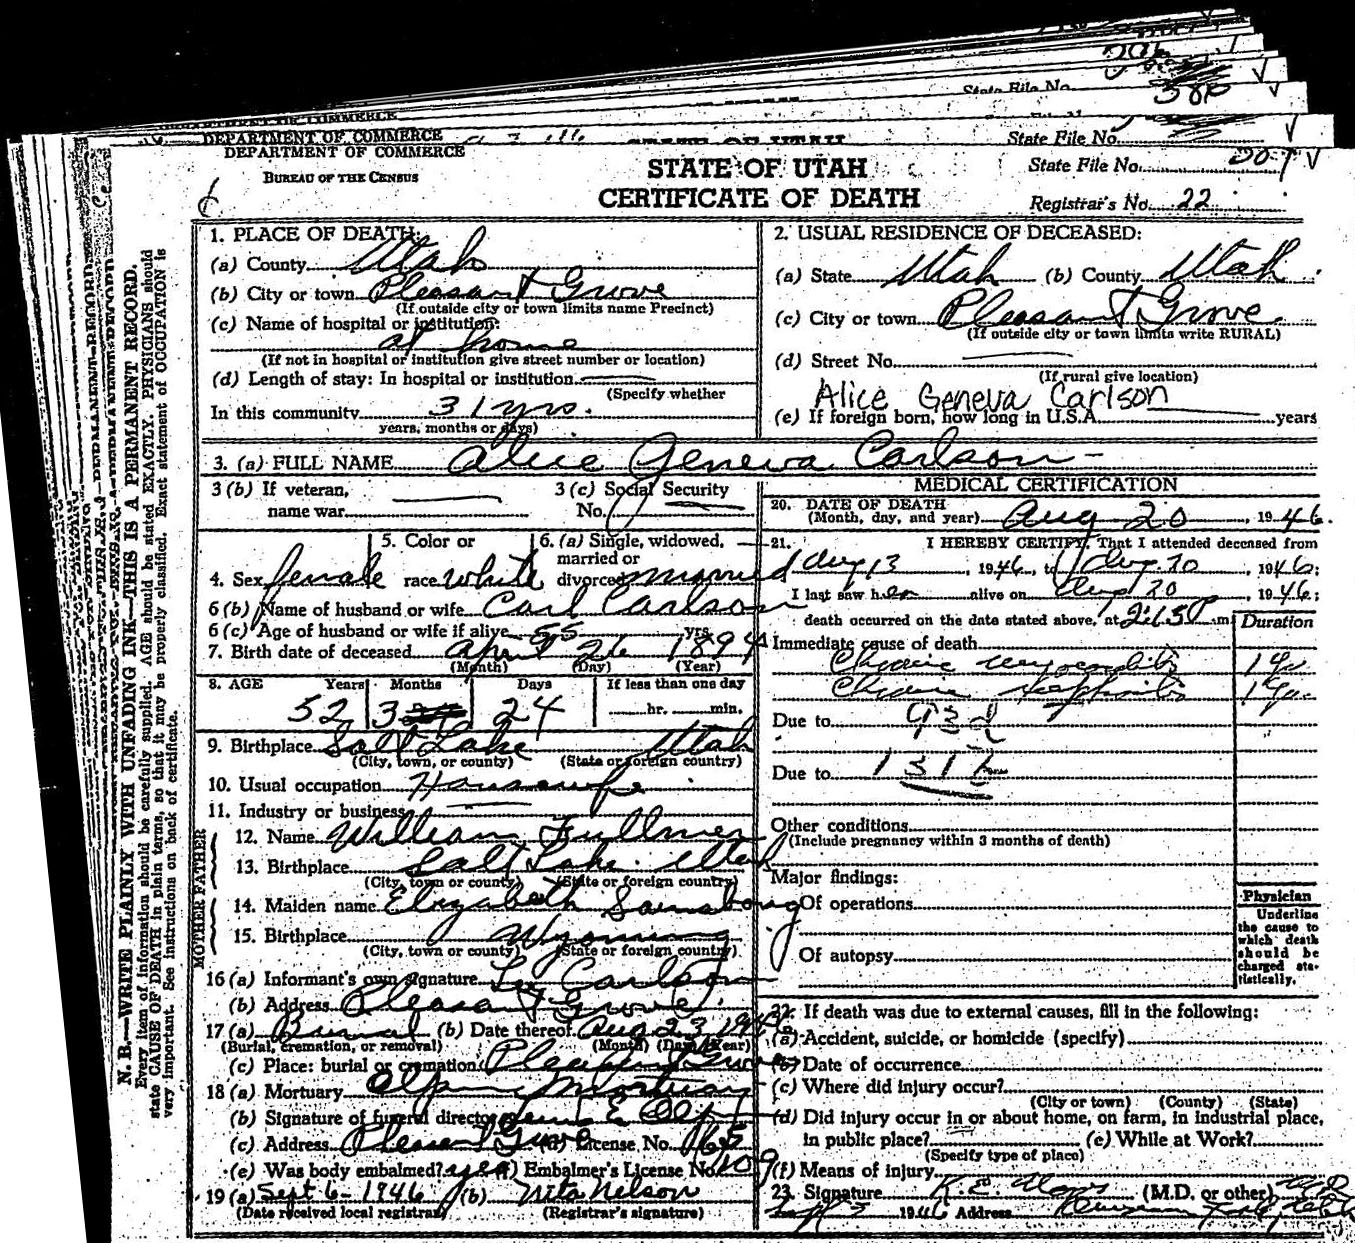 DEPARTMENT OF COMMERCE
DEPARTMENT OF COMMERCE
BUREAU OF THE CENSUS
STATE OF UTAH
CERTIFICATE OF DEATH
State File No.
State File No.
State File No.
Registrar's No. 22
N. B.—WRITE PLAINLY WITH UNFADING INK—THIS IS A PERMANENT RECORD.
Every item of information should be carefully supplied. AGE should be stated EXACTLY. PHYSICIANS should
state CAUSE OF DEATH in plain terms, so that it may be properly classified. Exact statement of OCCUPATION is
very important. See instructions on back of certificate.
1. PLACE OF DEATH:
(a) County Utah
(b) City or town Pleasant Grove
(If outside city or town limits name Precinct)
(c) Name of hospital or institution:
at home
(If not in hospital or institution give street number or location)
(d) Length of stay: In hospital or institution
(Specify whether
In this community 31 yrs.
years, months or days)
2. USUAL RESIDENCE OF DECEASED:
(a) State Utah (b) County Utah
(c) City or town Pleasant Grove
(If outside city or town limits write RURAL)
(d) Street No.
(If rural give location)
Alice Geneva Carlson
(e) If foreign born, how long in U.S.A. years
3. (a) FULL NAME Alice Geneva Carlson
3 (b) If veteran,
name war
3 (c) Social Security
No.
4. Sex female
5. Color or
race white
6. (a) Single, widowed,
married or
divorced married
6 (b) Name of husband or wife Carl Carlson
6 (c) Age of husband or wife if alive 55 yrs.
7. Birth date of deceased April 26 1894
(Month) (Day) (Year)
8. AGE Years Months Days If less than one day
52 3 24 hr. min.
9. Birthplace Salt Lake Utah
(City, town, or county) (State or foreign country)
10. Usual occupation Housewife
11. Industry or business
FATHER
12. Name William Fullmer
13. Birthplace Salt Lake Utah
(City, town or county) (State or foreign country)
MOTHER
14. Maiden name Elizabeth
15. Birthplace Wyoming
(City, town or county) (State or foreign country)
16 (a) Informant's own signature Carlson
(b) Address Pleasant Grove
17 (a) Burial (b) Date thereof Aug 23 1946
(Burial, cremation, or removal) (Month) (Day) (Year)
(c) Place: burial or cremation Pleasant Grove
18 (a) Mortuary Olpin Mortuary
(b) Signature of funeral director E Olpin
(c) Address Pleasant Grove (d) License No. 165
(e) Was body embalmed? yes (f) Embalmer's License No. 109
19 (a) Sept 6-1946 (b) Nita Nelson
(Date received local registrar) (Registrar's signature)
MEDICAL CERTIFICATION
20. DATE OF DEATH
(Month, day, and year) Aug 20, 1946.
21. I HEREBY CERTIFY, That I attended deceased from
Aug 13, 1946, to Aug 20, 1946;
I last saw her alive on Aug 20, 1946;
death occurred on the date stated above, at 2:15 P m.
Duration
Immediate cause of death
Chronic myocarditis 1 yr
Chronic nephritis 1 yr
Due to 93d
Due to 131
Other conditions
(Include pregnancy within 3 months of death)
Major findings:
Of operations
Of autopsy
Physician
Underline
the cause to
which death
should be
charged sta-
tistically.
22. If death was due to external causes, fill in the following:
(a) Accident, suicide, or homicide (specify)
(b) Date of occurrence
(c) Where did injury occur?
(City or town) (County) (State)
(d) Did injury occur in or about home, on farm, in industrial place,
in public place? (e) While at Work?
(Specify type of place)
(f) Means of injury
23. Signature (M.D. or other) M.D.
1946 Address